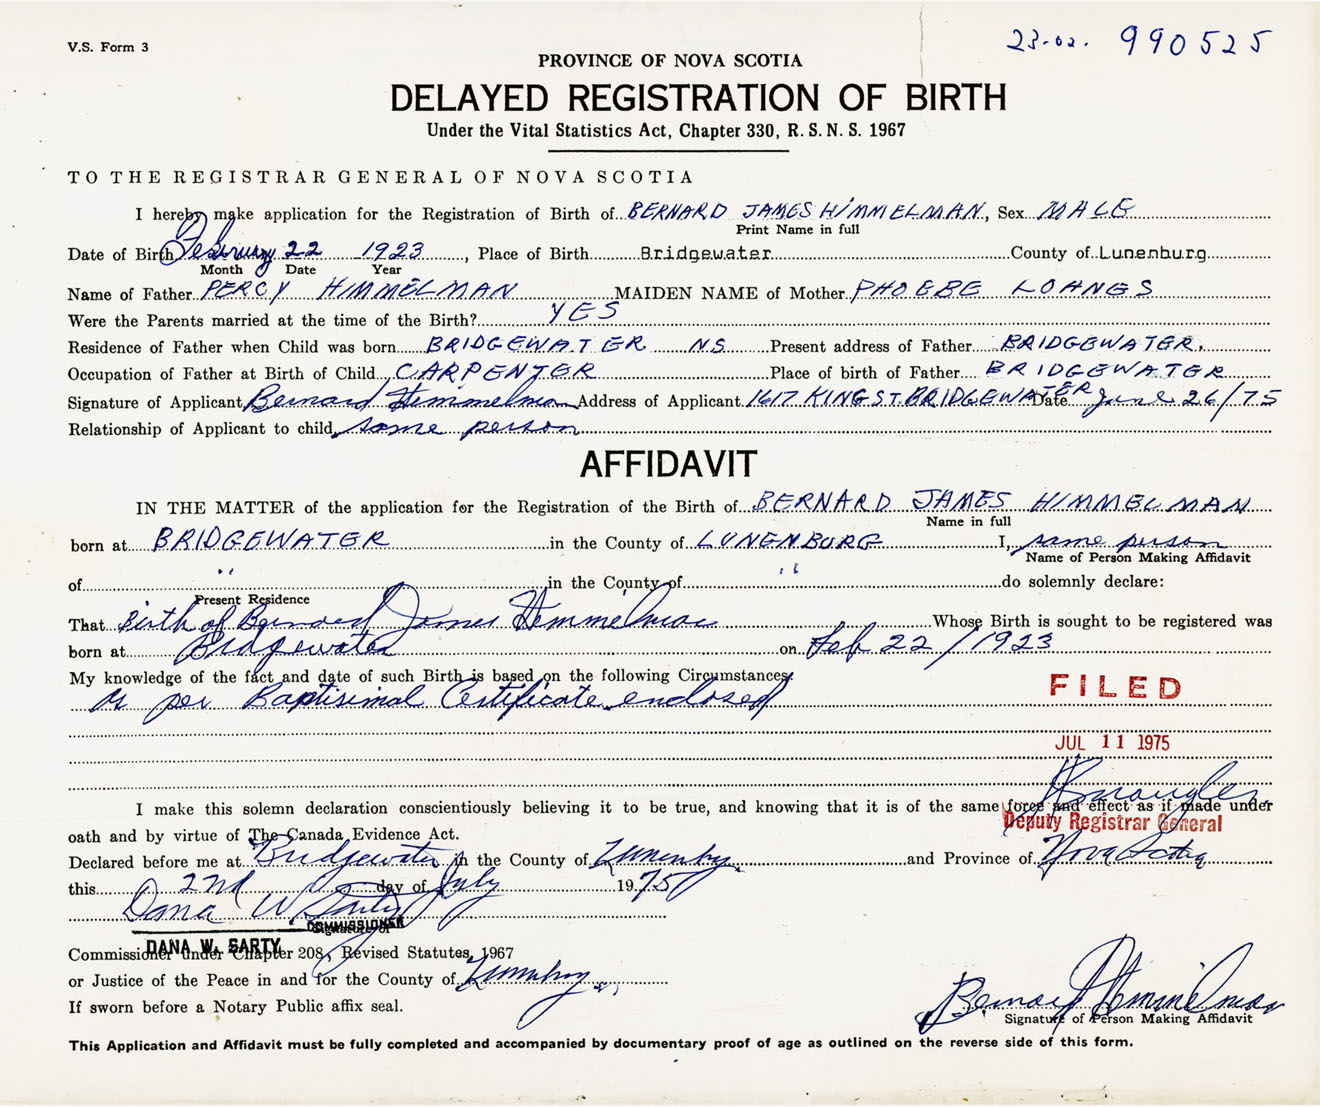 V.S. Form 3
23-02. 990525
PROVINCE OF NOVA SCOTIA
DELAYED REGISTRATION OF BIRTH
Under the Vital Statistics Act, Chapter 330, R. S. N. S. 1967
TO THE REGISTRAR GENERAL OF NOVA SCOTIA
I hereby make application for the Registration of Birth of BERNARD JAMES HIMMELMAN, Sex MALE
Print Name in full
Date of Birth February 22 1923, Place of Birth Bridgewater County of Lunenburg
Month Date Year
Name of Father PERCY HIMMELMAN MAIDEN NAME of Mother PHOEBE LOHNES
Were the Parents married at the time of the Birth? YES
Residence of Father when Child was born BRIDGEWATER NS Present address of Father BRIDGEWATER.
Occupation of Father at Birth of Child CARPENTER Place of birth of Father BRIDGEWATER
Signature of Applicant Bernard Himmelman Address of Applicant 1617 KING ST. BRIDGEWATER Date June 26/75
Relationship of Applicant to child same person
AFFIDAVIT
IN THE MATTER of the application for the Registration of the Birth of BERNARD JAMES HIMMELMAN
Name in full
born at BRIDGEWATER in the County of LUNENBURG I, same person
Name of Person Making Affidavit
of " in the County of " do solemnly declare:
Present Residence
That Birth of Bernard James Himmelman Whose Birth is sought to be registered was
born at Bridgewater on Feb 22/1923
My knowledge of the fact and date of such Birth is based on the following Circumstances:
as per Baptisimal Certificate enclosed
FILED
JUL 11 1975
I make this solemn declaration conscientiously believing it to be true, and knowing that it is of the same force and effect as if made under
Deputy Registrar General
oath and by virtue of The Canada Evidence Act.
Declared before me at Bridgewater in the County of Lunenbg. and Province of Nova Scotia
this 2nd day of July 1975
Dana W. Sarty
COMMISSIONER
Signature of
DANA W. SARTY
Commissioner under Chapter 208, Revised Statutes, 1967
or Justice of the Peace in and for the County of Lunenbg.
If sworn before a Notary Public affix seal.
Bernard Himmelman
Signature of Person Making Affidavit
This Application and Affidavit must be fully completed and accompanied by documentary proof of age as outlined on the reverse side of this form.